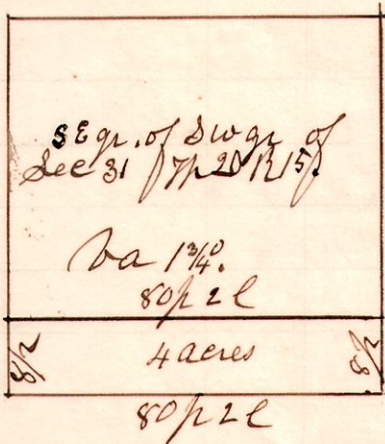 SE qr. of SW qr of
Sec 31 Tp 20 R 15
Va 1 3/4°.
80 p 2 l
8 p
4 acres
8 p
80 p 2 l